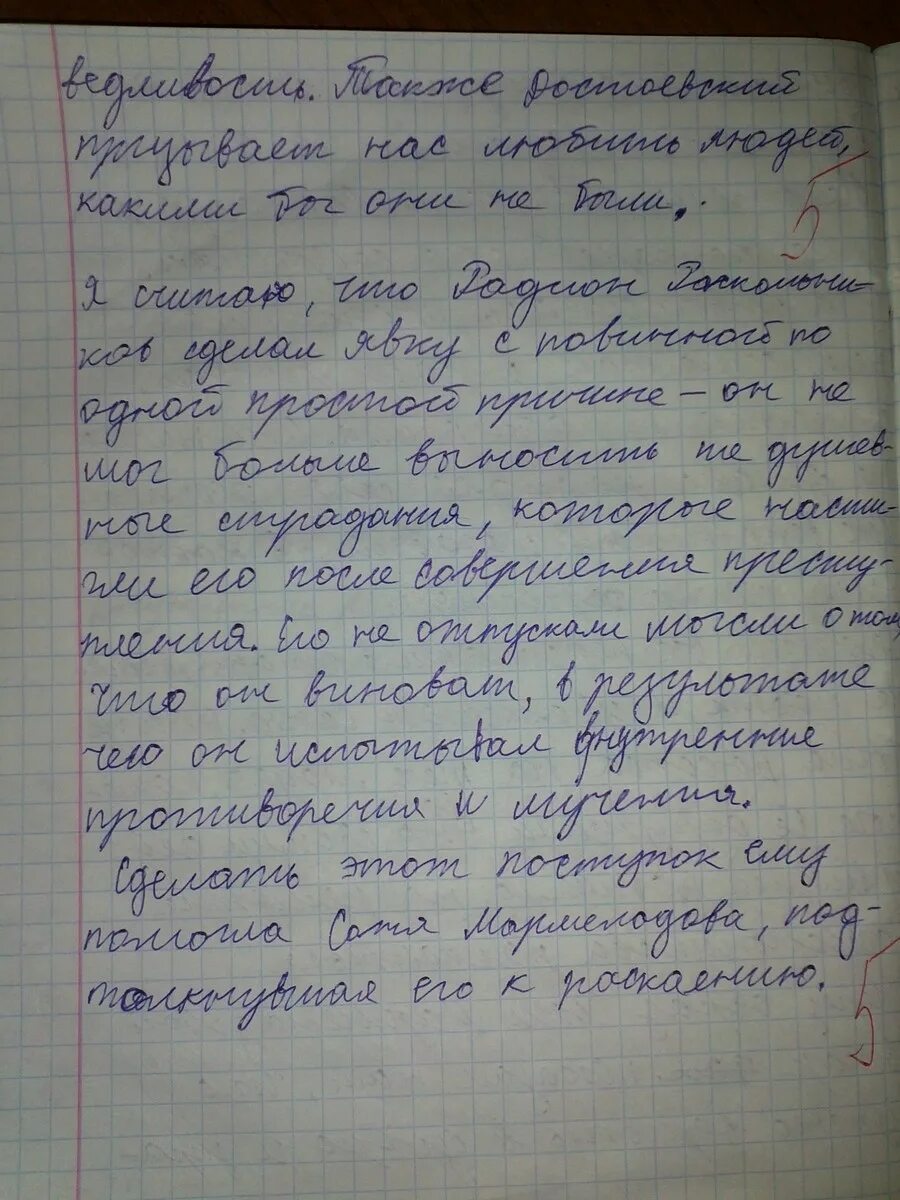 ведливость. Также Достоевский
призывает нас любить людей,
какими бы они не были.
5
Я считаю, что Радион Раскольни-
ков сделал явку с повинной по
одной простой причине – он не
мог больше выносить те душев-
ные страдания, которые насти-
гли его после совершения престу-
пления. Его не отпускали мысли о том,
что он виноват, в результате
чего он испытывал внутренние
противоречия и мучения.
Сделать этот поступок ему
помогла Соня Мармеладова, под-
толкнувшая его к раскаянию.
5